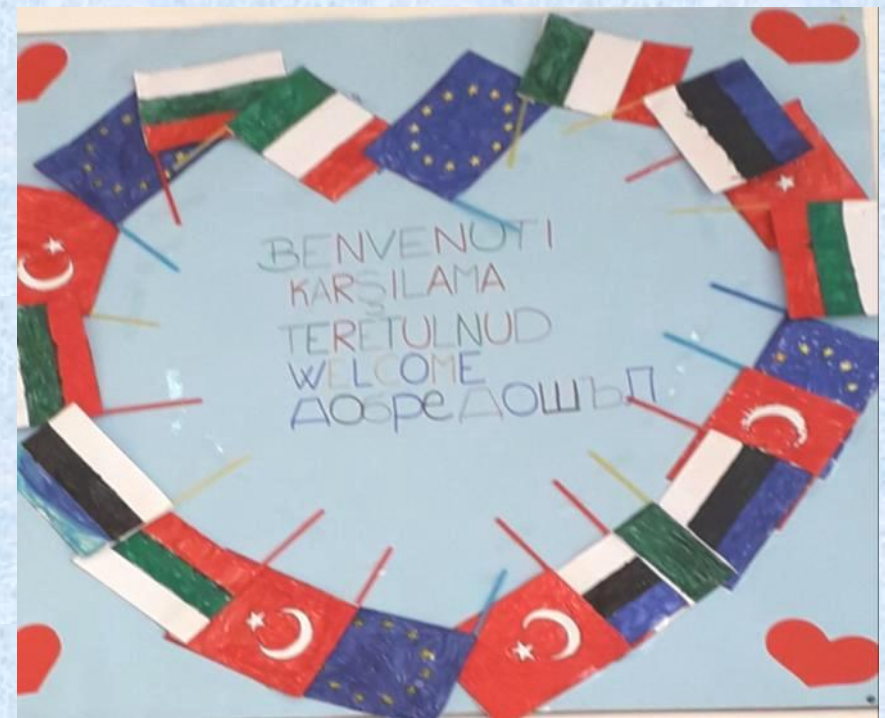 BENVENUTI
KARŞILAMA
TERETULNUD
WELCOME
ДОБРЕ ДОШЪЛ